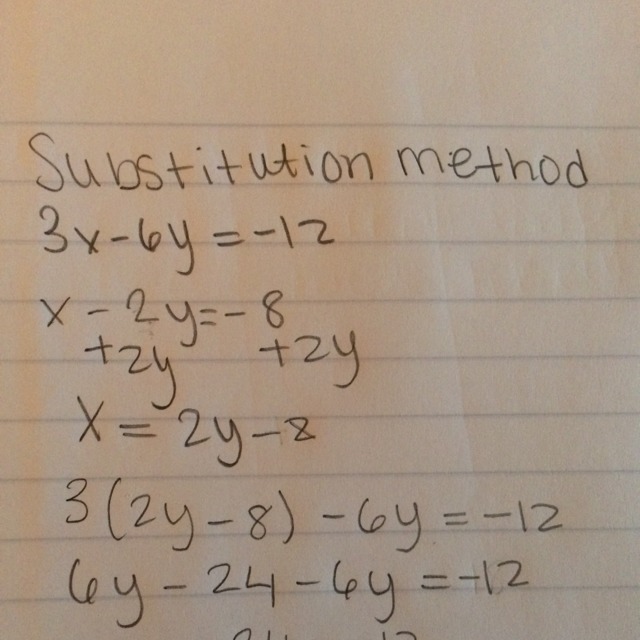 Substitution method
3x-6y=-12
x-2y=-8
+2y +2y
X=2y-8
3(2y-8)-6y=-12
6y-24-6y=-12